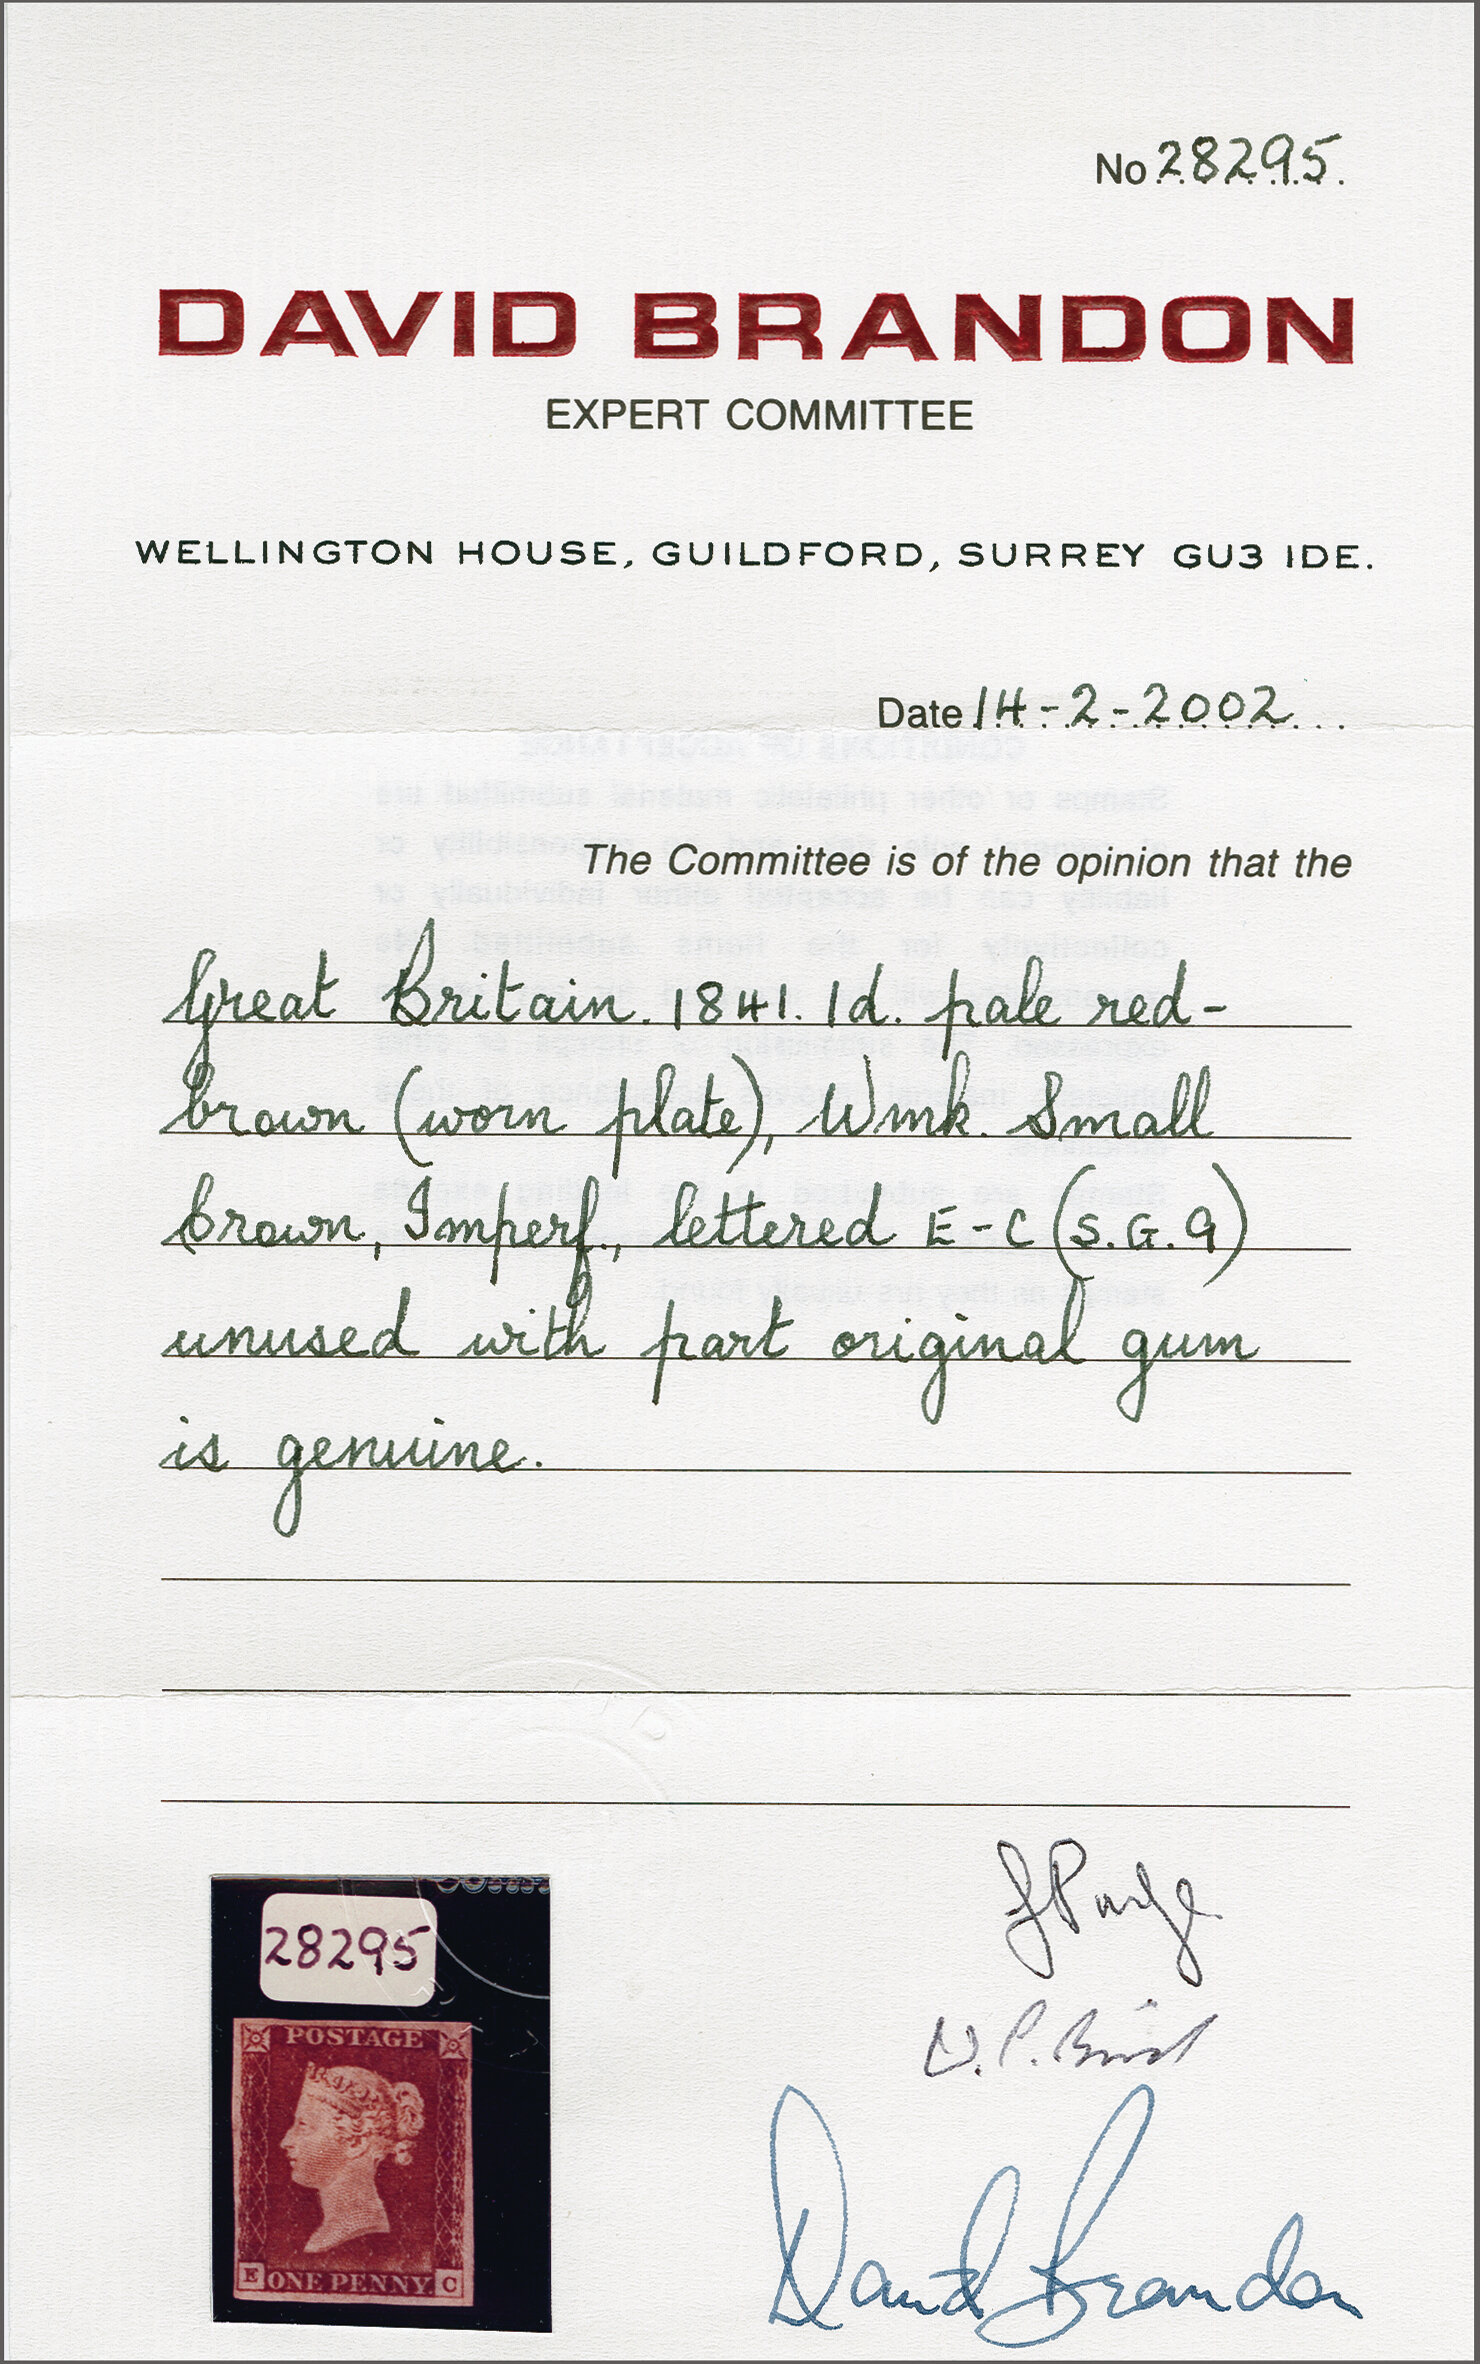 No 28295.
DAVID BRANDON
EXPERT COMMITTEE
WELLINGTON HOUSE, GUILDFORD, SURREY GU3 IDE.
Date 14-2-2002...
The Committee is of the opinion that the
Great Britain. 1841. 1d. pale red-
brown (worn plate), Wmk. Small
Crown, Imperf., lettered E-C (S.G. 9)
unused with part original gum
is genuine.
28295
POSTAGE
E ONE PENNY C
David Brandon